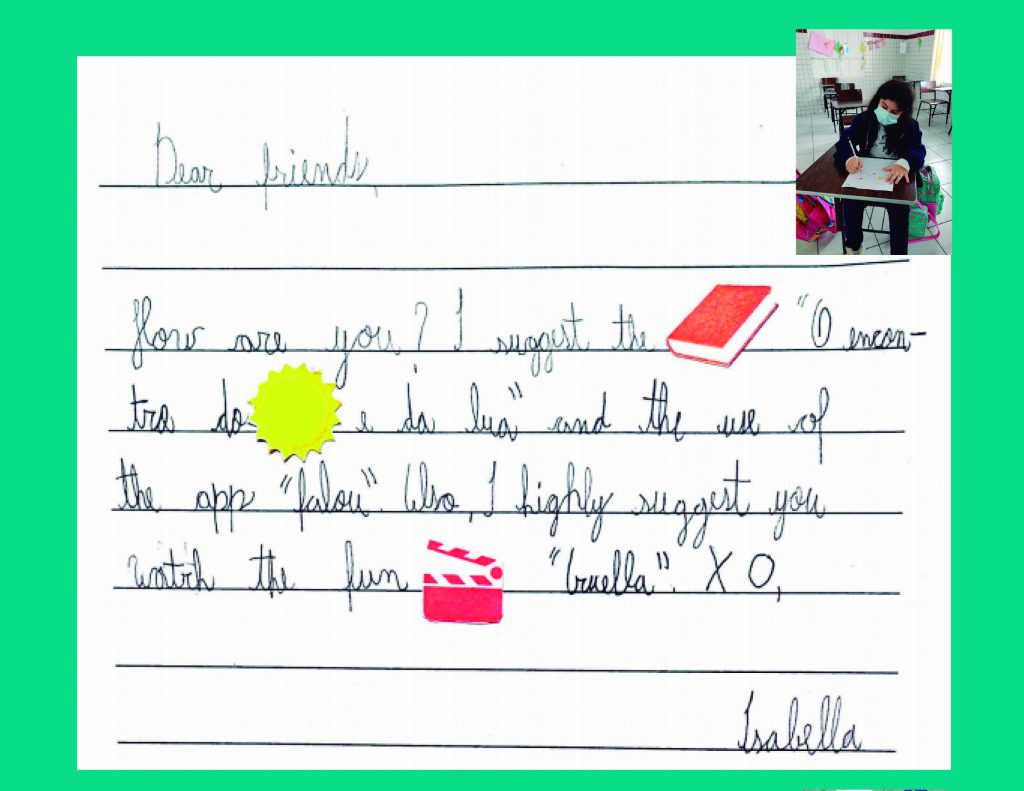 Dear friends,
How are you? I suggest the "O encon-
tro do e da lua" and the use of
the app "falou". Also, I highly suggest you
watch the fun "Cruella". X O,
Isabella